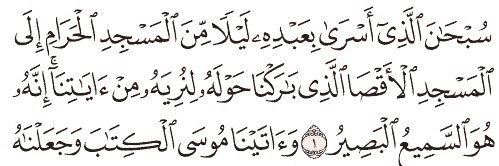 سُبْحَٰنَ ٱلَّذِىٓ أَسْرَىٰ بِعَبْدِهِۦ لَيْلًا مِّنَ ٱلْمَسْجِدِ ٱلْحَرَامِ إِلَى
ٱلْمَسْجِدِ ٱلْأَقْصَا ٱلَّذِى بَٰرَكْنَا حَوْلَهُۥ لِنُرِيَهُۥ مِنْ ءَايَٰتِنَآ ۚ إِنَّهُۥ
هُوَ ٱلسَّمِيعُ ٱلْبَصِيرُ ١ وَءَاتَيْنَا مُوسَى ٱلْكِتَٰبَ وَجَعَلْنَٰهُ